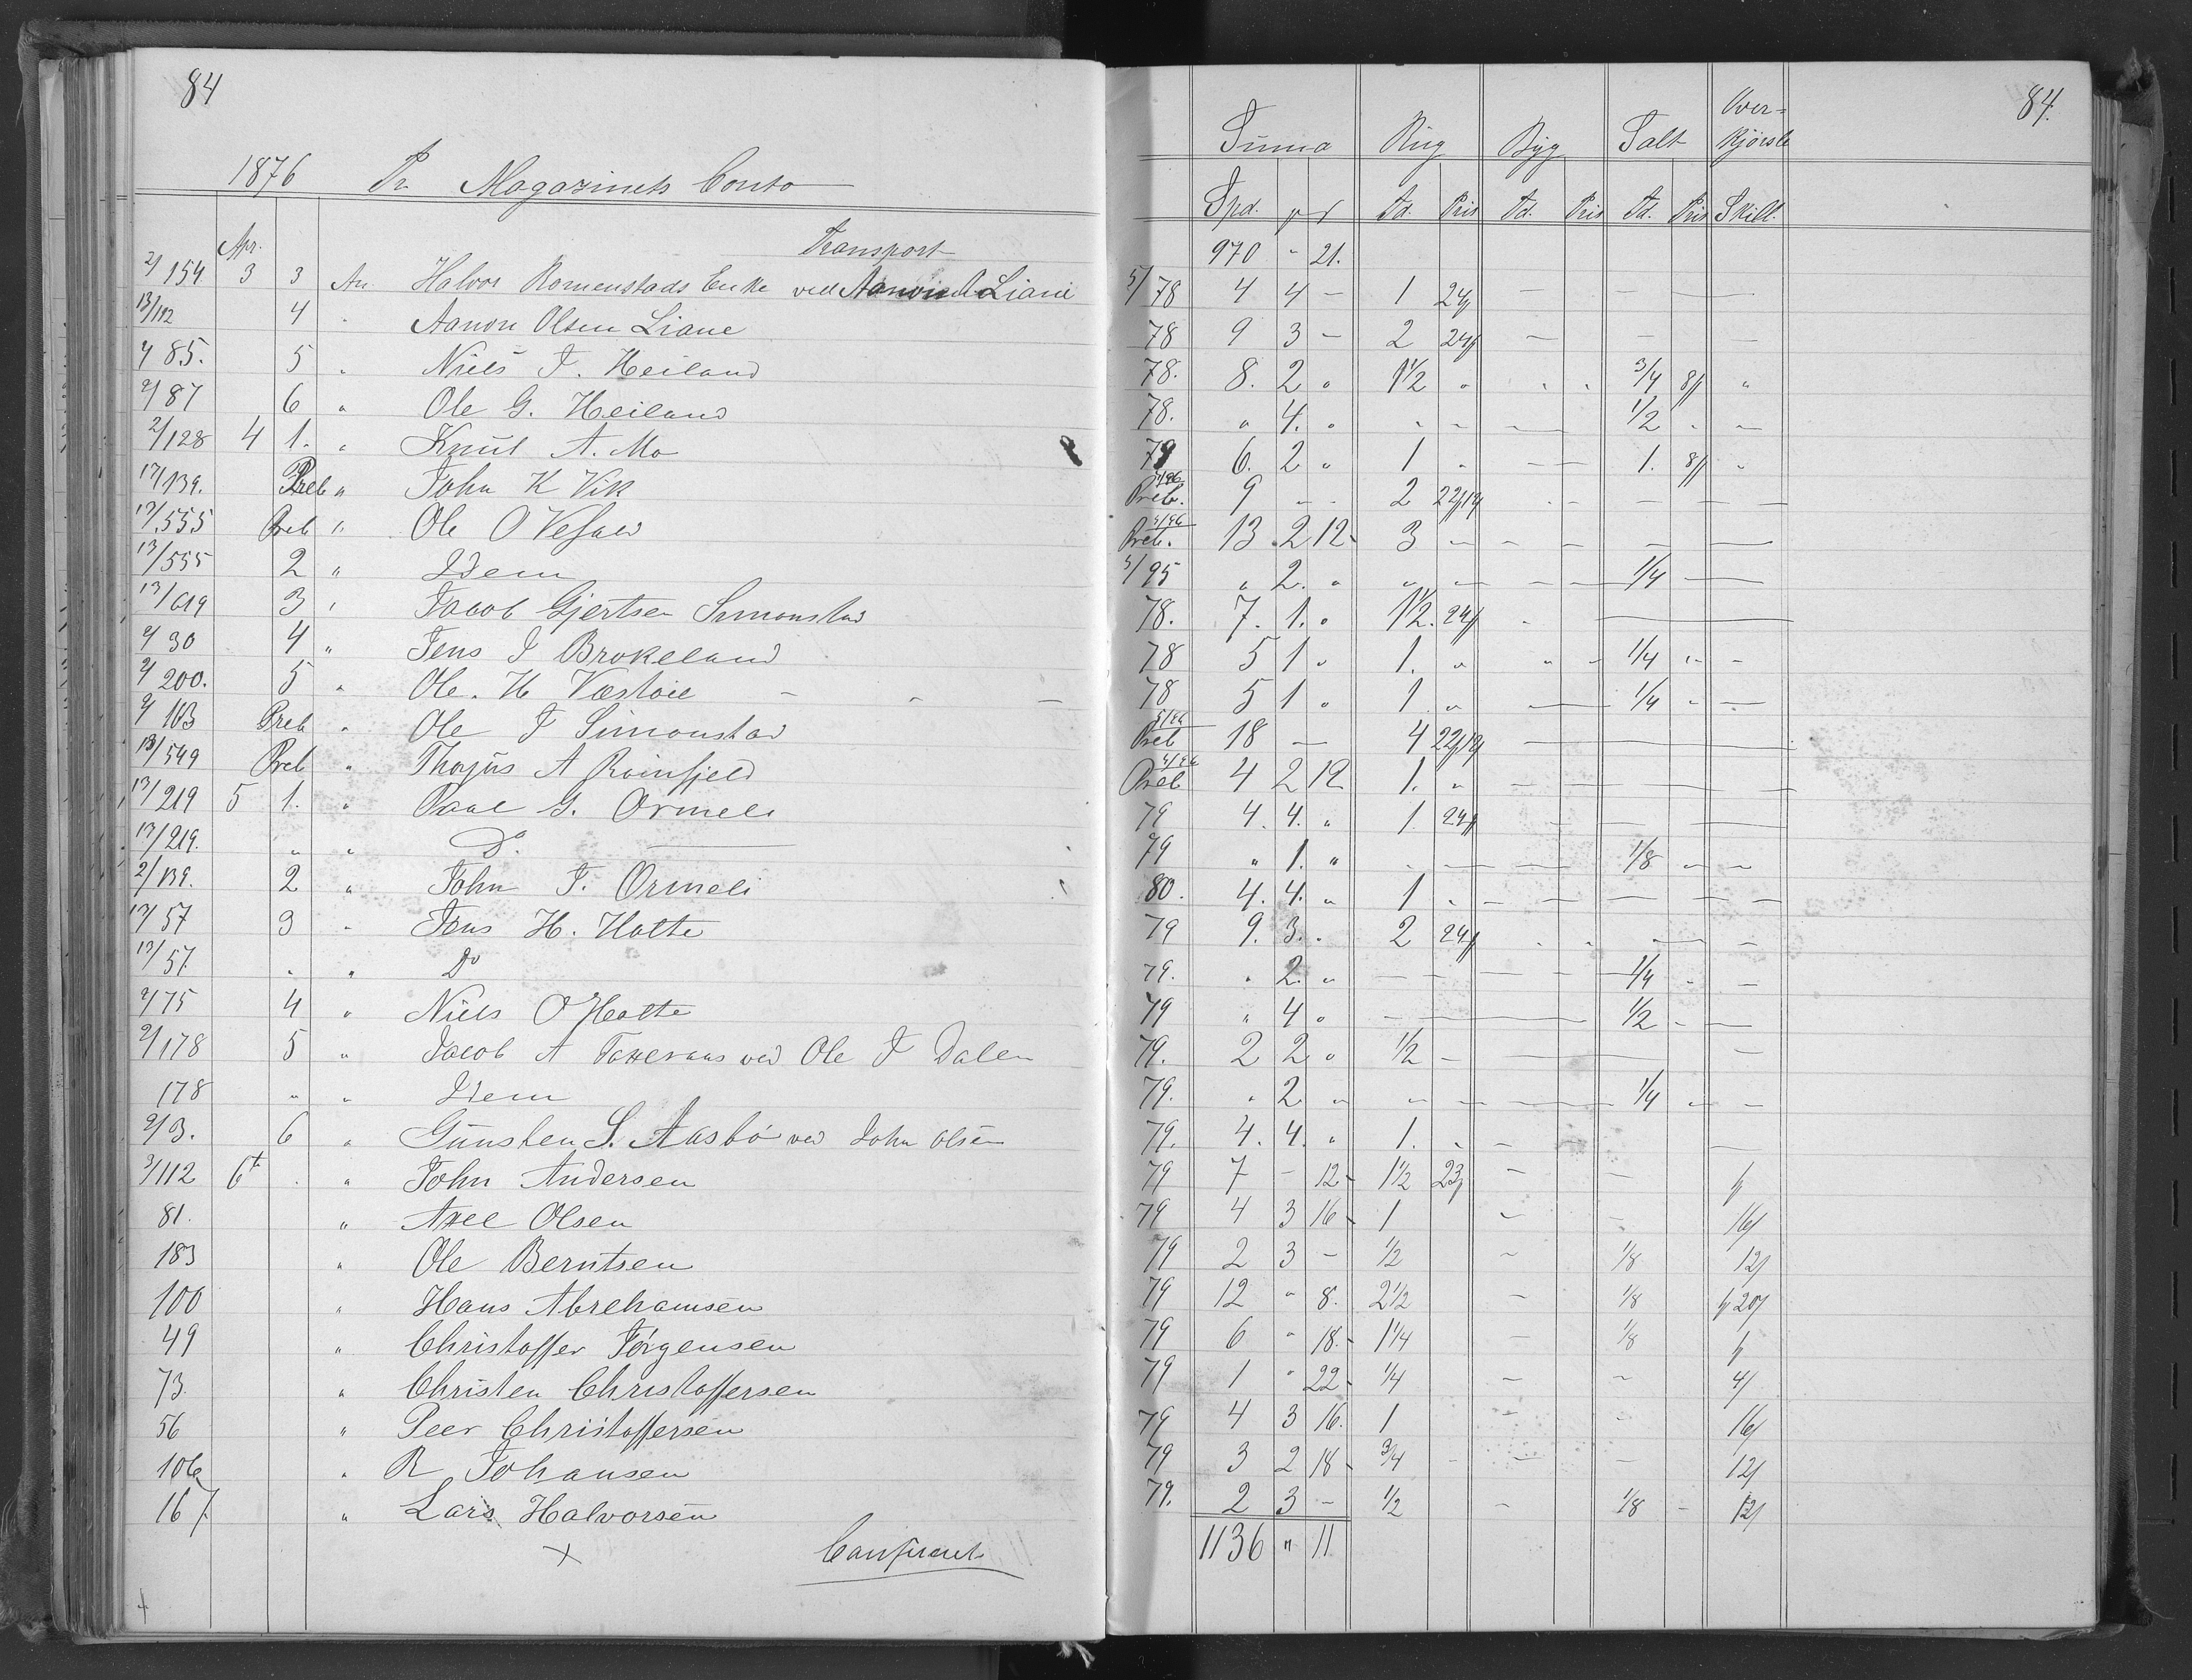 84
1876 Pr Magazinets Conto
Transport
Apr.
2/154 3 3 An Halvor Romenstads Enke ved Aanon Liane
13/112 4 " Aanon Olsen Liane
2/85. 5 " Niels T. Heiland
2/87 6 " Ole G. Heiland
2/128 4 1. " Knut A. Mo
17/139. Preb " John K Vik
13/555 Preb " Ole O Vefald
13/555 2 " Idem
13/619 3 " Jacob Gjertsen Simonstad
2/30 4 " Jens J Brokeland
2/200. 5 " Ole. H Vestøie
2/163 Preb " Ole T Simonstad
13/549 Preb " Thorjus A Roinfjeld
13/219 5 1. " Paal G. Ormeli
13/219. " " Do
2/139. 2 " John T. Ormeli
13/57 3 " Jens H. Holte
13/57. " " Do
2/75 4 " Niels O Holte
2/178 5 " Jacob A Taxeraas ved Ole T Dalen
178 " " Idem
2/3. 6 " Gunsten S. Aasbø ved John Olsen
3/112 6t " John Andersen
81. " Axel Olsen
183 " Ole Berntsen
100 " Hans Abrehamsen
49 " Christoffer Jørgensen
73. " Christen Christoffersen
56 " Peer Christoffersen
106 " R Johansen
167. " Lars Halvorsen
+
84.
Suma Rug Byg Salt Over-kjørsle
Spd. Td. Pris Td. Pris Td. Pris Skill.
970 " 21.
5/78 4 4 - 1 24 - - -
78 9 3 - 2 24 - - -
78. 8. 2 " 1 1/2 " " " 3/4 8 "
78. " 4. " " " - 1/2 " -
79 6. 2 " 1 " - 1. 8 "
Preb. 9 - - 2 22/12 - - -
Preb. 13 2 12 3 - - - - -
5/95 " 2. " " - - - 1/4 -
78. 7. 1. " 1 1/2. 24 -
78 5 1 " 1. " " - 1/4 " -
78 5 1 " 1 " - 1/4 " -
Preb 18 - 4 22/12 -
Preb 4 2 12 1. " - - - -
79 4. 4. " 1 24 - - -
79 " 1. " " - - 1/8 - -
80. 4. 4. " 1 " - - - - -
79 9. 3. " 2 24 " " - -
79. " 2. " - - - - 1/4 " -
79 " 4 " - - 1/2 - -
79. 2 2 " 1/2 - - - -
79. " 2 " " - - - 1/4 " -
79. 4. 4. " 1. " - -
79 7 - 12 1 1/2 23 - -
79 4 3 16 1 - - 16
79 2 3 - 1/2 - 1/8 12
79 12 " 8. 2 1/2 - 1/8 20
79 6 " 18 1 1/4 - 1/8
79 1 " 22 1/4 - - 4
79 4 3 16. 1 - - 16
79 3 2 18 3/4 - - - 12
79. 2 3 - 1/2 - 1/8 - 12
1136 " 11